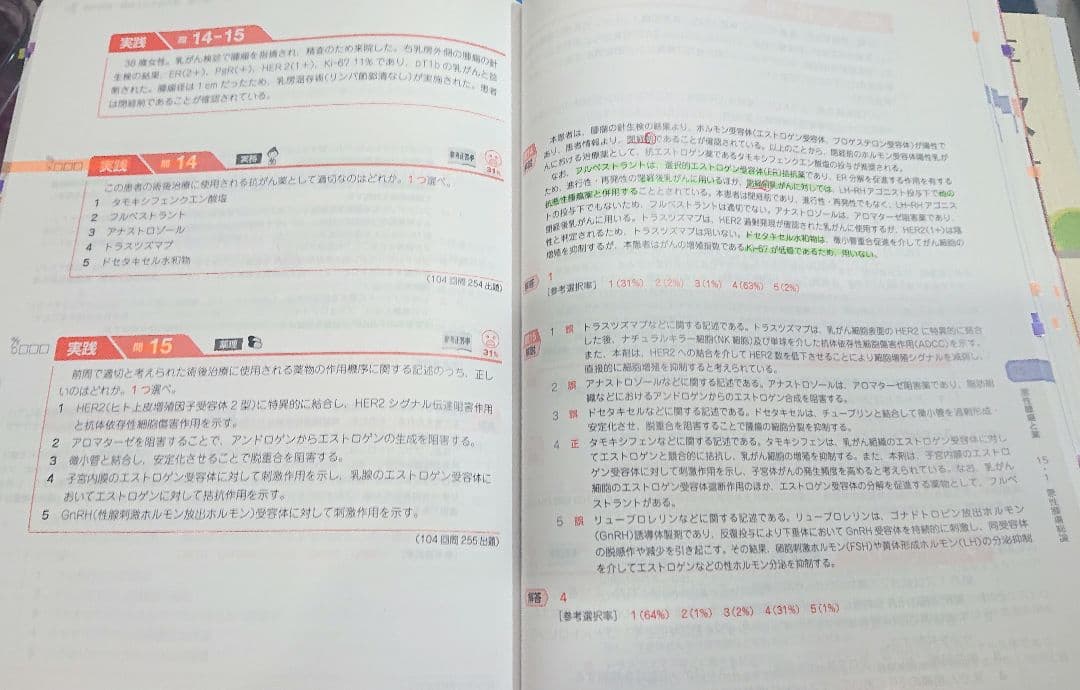 実践 問 14-15
38歳女性。乳がん検診で腫瘤を指摘され、精査のため来院した。右乳房外側の腫瘤の針
生検の結果、ER(2+)、PgR(+)、HER2(1+)、Ki-67 11%であり、pT1bの乳がんと診
断された。腫瘤径は1cmだったため、乳房温存術(リンパ節郭清なし)が実施された。患者
は閉経前であることが確認されている。
実践 問 14 実務
31%
この患者の術後治療に使用される抗がん薬として適切なのはどれか。1つ選べ。
1 タモキシフェンクエン酸塩
2 フルベストラント
3 アナストロゾール
4 トラスツズマブ
5 ドセタキセル水和物
(104回問254出題)
実践 問 15 薬理
31%
前問で適切と考えられた術後治療に使用される薬物の作用機序に関する記述のうち、正し
いのはどれか。1つ選べ。
1 HER2(ヒト上皮増殖因子受容体2型)に特異的に結合し、HER2シグナル伝達阻害作用
と抗体依存性細胞傷害作用を示す。
2 アロマターゼを阻害することで、アンドロゲンからエストロゲンの生成を阻害する。
3 微小管と結合し、安定化させることで脱重合を阻害する。
4 子宮内膜のエストロゲン受容体に対して刺激作用を示し、乳腺のエストロゲン受容体に
おいてエストロゲンに対して拮抗作用を示す。
5 GnRH(性腺刺激ホルモン放出ホルモン)受容体に対して刺激作用を示す。
(104回問255出題)
本患者は、腫瘤の針生検の結果より、ホルモン受容体(エストロゲン受容体、プロゲステロン受容体)が陽性で
あり、患者情報より、閉経前であることが確認されている。以上のことから、閉経前のホルモン受容体陽性乳が
んにおける治療薬として、抗エストロゲン薬であるタモキシフェンクエン酸塩の投与が推奨される。
なお、フルベストラントは、選択的エストロゲン受容体(ER)拮抗薬であり、ER分解を促進する作用を有する
ため、進行性・再発性の閉経後乳がんに用いるほか、閉経前乳がんに対しては、LH-RHアゴニスト投与下で他の
抗悪性腫瘍薬と併用することとされている。本患者は閉経前であり、進行性・再発性でもなく、LH-RHアゴニス
トの投与下でもないため、フルベストラントは適切でない。アナストロゾールは、アロマターゼ阻害薬であり、
閉経後乳がんに用いる。トラスツズマブは、HER2過剰発現が確認された乳がんに使用するが、HER2(1+)は陰
性と判定されるため、トラスツズマブは用いない。ドセタキセル水和物は、微小管重合促進を介してがん細胞の
増殖を抑制するが、本患者はがんの増殖指数であるKi-67が低値であるため、用いない。
解答 1
[参考選択率] 1(31%) 2(2%) 3(1%) 4(63%) 5(2%)
解説 1 誤 トラスツズマブなどに関する記述である。トラスツズマブは、乳がん細胞表面のHER2に特異的に結合
した後、ナチュラルキラー細胞(NK細胞)及び単球を介した抗体依存性細胞傷害作用(ADCC)を示す。
また、本剤は、HER2への結合を介してHER2数を低下させることにより細胞増殖シグナルを減弱し、
直接的に細胞増殖を抑制すると考えられている。
2 誤 アナストロゾールなどに関する記述である。アナストロゾールは、アロマターゼ阻害薬であり、脂肪組
織などにおけるアンドロゲンからのエストロゲン合成を阻害する。
3 誤 ドセタキセルなどに関する記述である。ドセタキセルは、チューブリンと結合して微小管を過剰形成・
安定化させ、脱重合を阻害することで腫瘍の細胞分裂を抑制する。
4 正 タモキシフェンなどに関する記述である。タモキシフェンは、乳がん組織のエストロゲン受容体に対し
てエストロゲンと競合的に拮抗し、乳がん細胞の増殖を抑制する。また、本剤は、子宮内膜のエストロ
ゲン受容体に対して刺激作用を示し、子宮体がんの発生頻度を高めると考えられている。なお、乳がん
細胞のエストロゲン受容体遮断作用のほか、エストロゲン受容体の分解を促進する薬物として、フルベ
ストラントがある。
5 誤 リュープロレリンなどに関する記述である。リュープロレリンは、ゴナドトロピン放出ホルモン
(GnRH)誘導体製剤であり、反復投与により下垂体においてGnRH受容体を持続的に刺激し、同受容体
の脱感作や減少を引き起こす。その結果、卵胞刺激ホルモン(FSH)や黄体形成ホルモン(LH)の分泌抑制
を介してエストロゲンなどの性ホルモン分泌を抑制する。
解答 4
[参考選択率] 1(64%) 2(1%) 3(2%) 4(31%) 5(1%)
悪性腫瘍と薬
15・1 悪性腫瘍総論